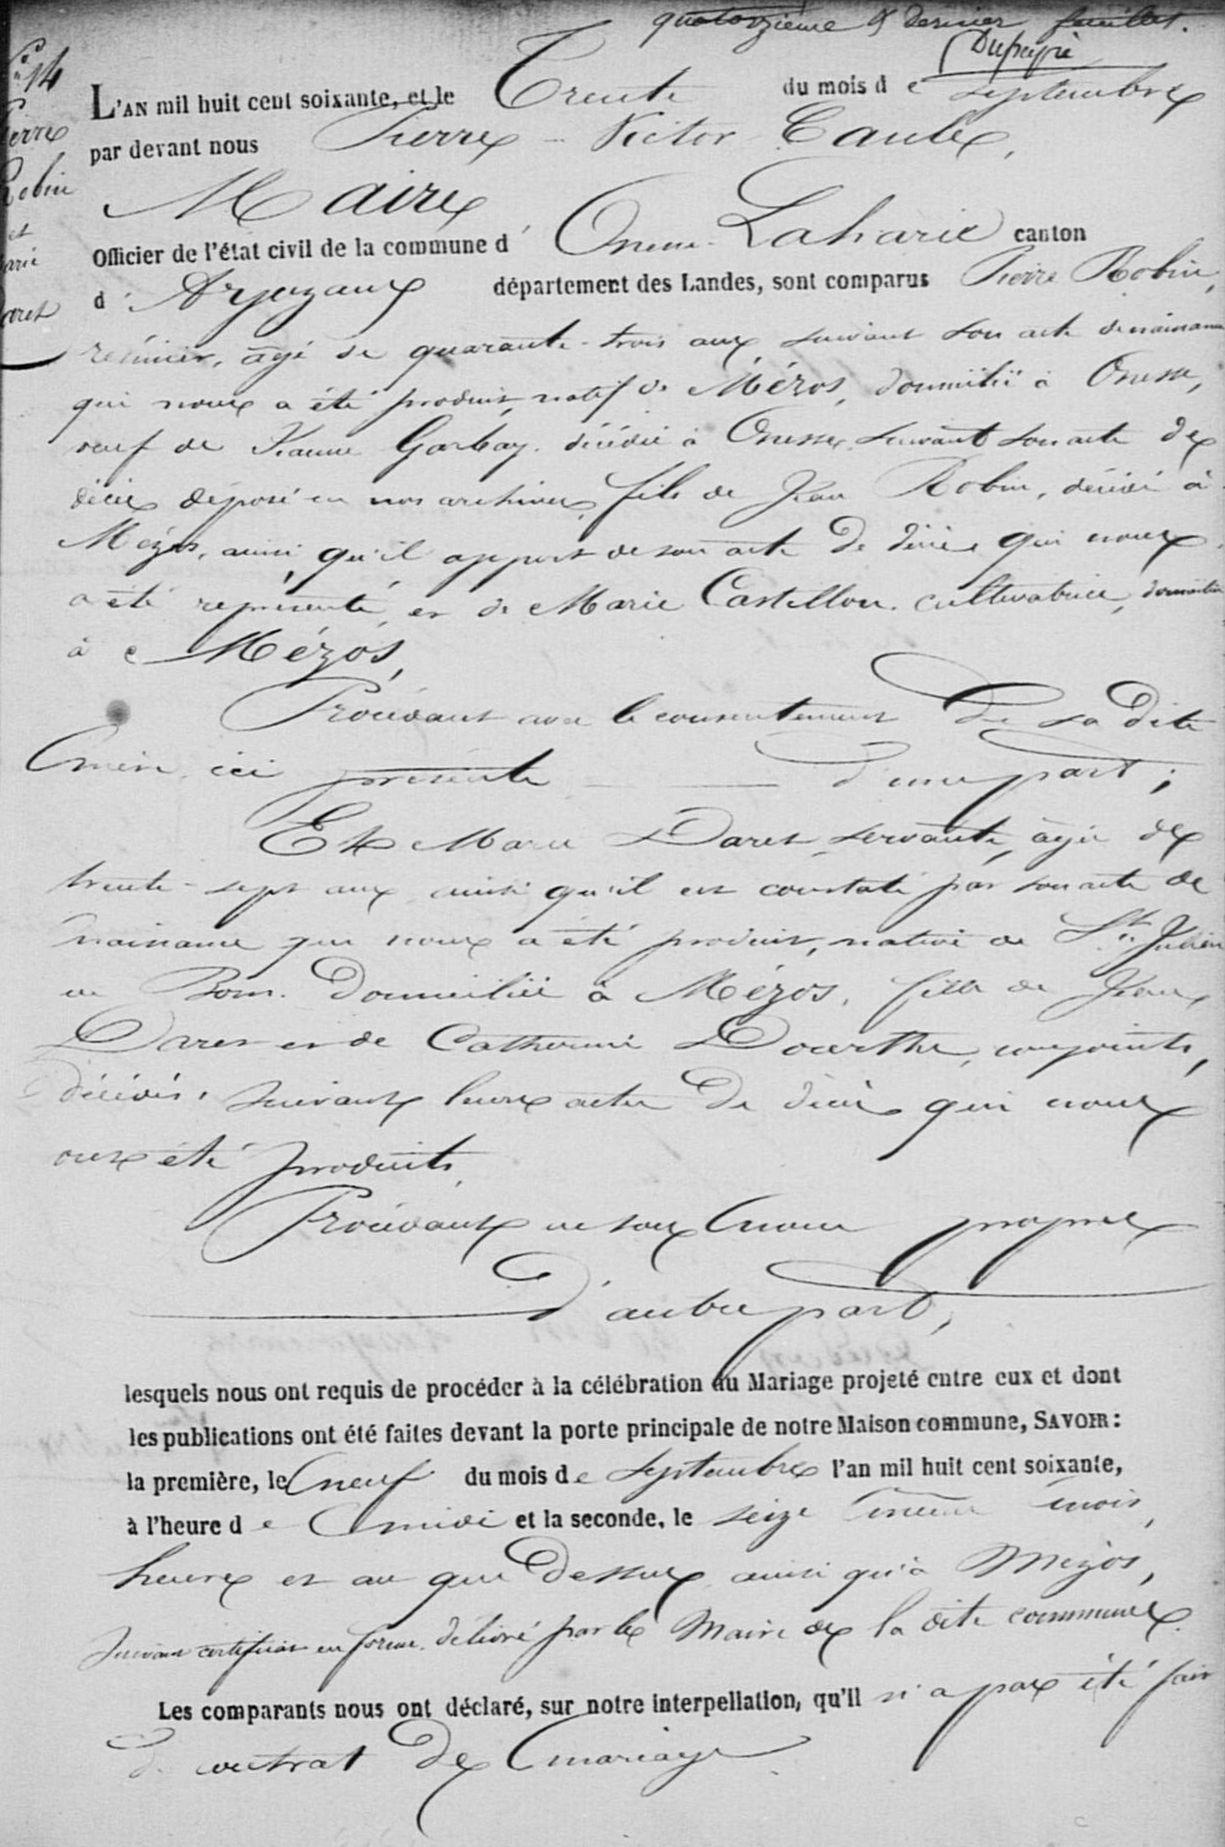 quatorzième & dernier feuillet.
Dupeyré
N° 14
Pierre
Robin
et
Marie
Daret
L'AN mil huit cent soixante, et le Trente du mois de Septembre
par devant nous Pierre-Victor Caule,
Maire
Officier de l'état civil de la commune d'Onesse-Laharie canton
d'Arjuzanx département des Landes, sont comparus Pierre Robin,
résinier, âgé de quarante-trois ans suivant son acte de naissance
qui nous a été produit, natif de Mézos, domicilié à Onesse,
veuf de Jeanne Garbay, décédée à Onesse suivant son acte de
décès déposé en nos archives, fils de Jean Robin, décédé à
Mézos, ainsi qu'il appert de son acte de décès qui nous
a été représenté, et de Marie Castillon, cultivatrice, domiciliée
à Mézos,
Procédant avec le consentement de sa dite
mère ici présente d'une part;
Et Marie Daret, servante, âgée de
trente-sept ans ainsi qu'il est constaté par son acte de
naissance qui nous a été produit, native de St Julien
en Born, domiciliée à Mézos, fille de Jean
Daret et de Catherine Dourthe, conjoints,
décédés, suivant leurs actes de décès qui nous
ont été produits,
Procédant en son nom propre
d'autre part,
lesquels nous ont requis de procéder à la célébration du Mariage projeté entre eux et dont
les publications ont été faites devant la porte principale de notre Maison commune, SAVOIR:
la première, le neuf du mois de Septembre l'an mil huit cent soixante,
à l'heure de midi et la seconde, le seize même mois,
heure et an que dessus, ainsi qu'à Mézos,
suivant certificat en forme délivré par le Maire de la dite commune.
Les comparants nous ont déclaré, sur notre interpellation, qu'il n'a pas été fait
de contrat de mariage